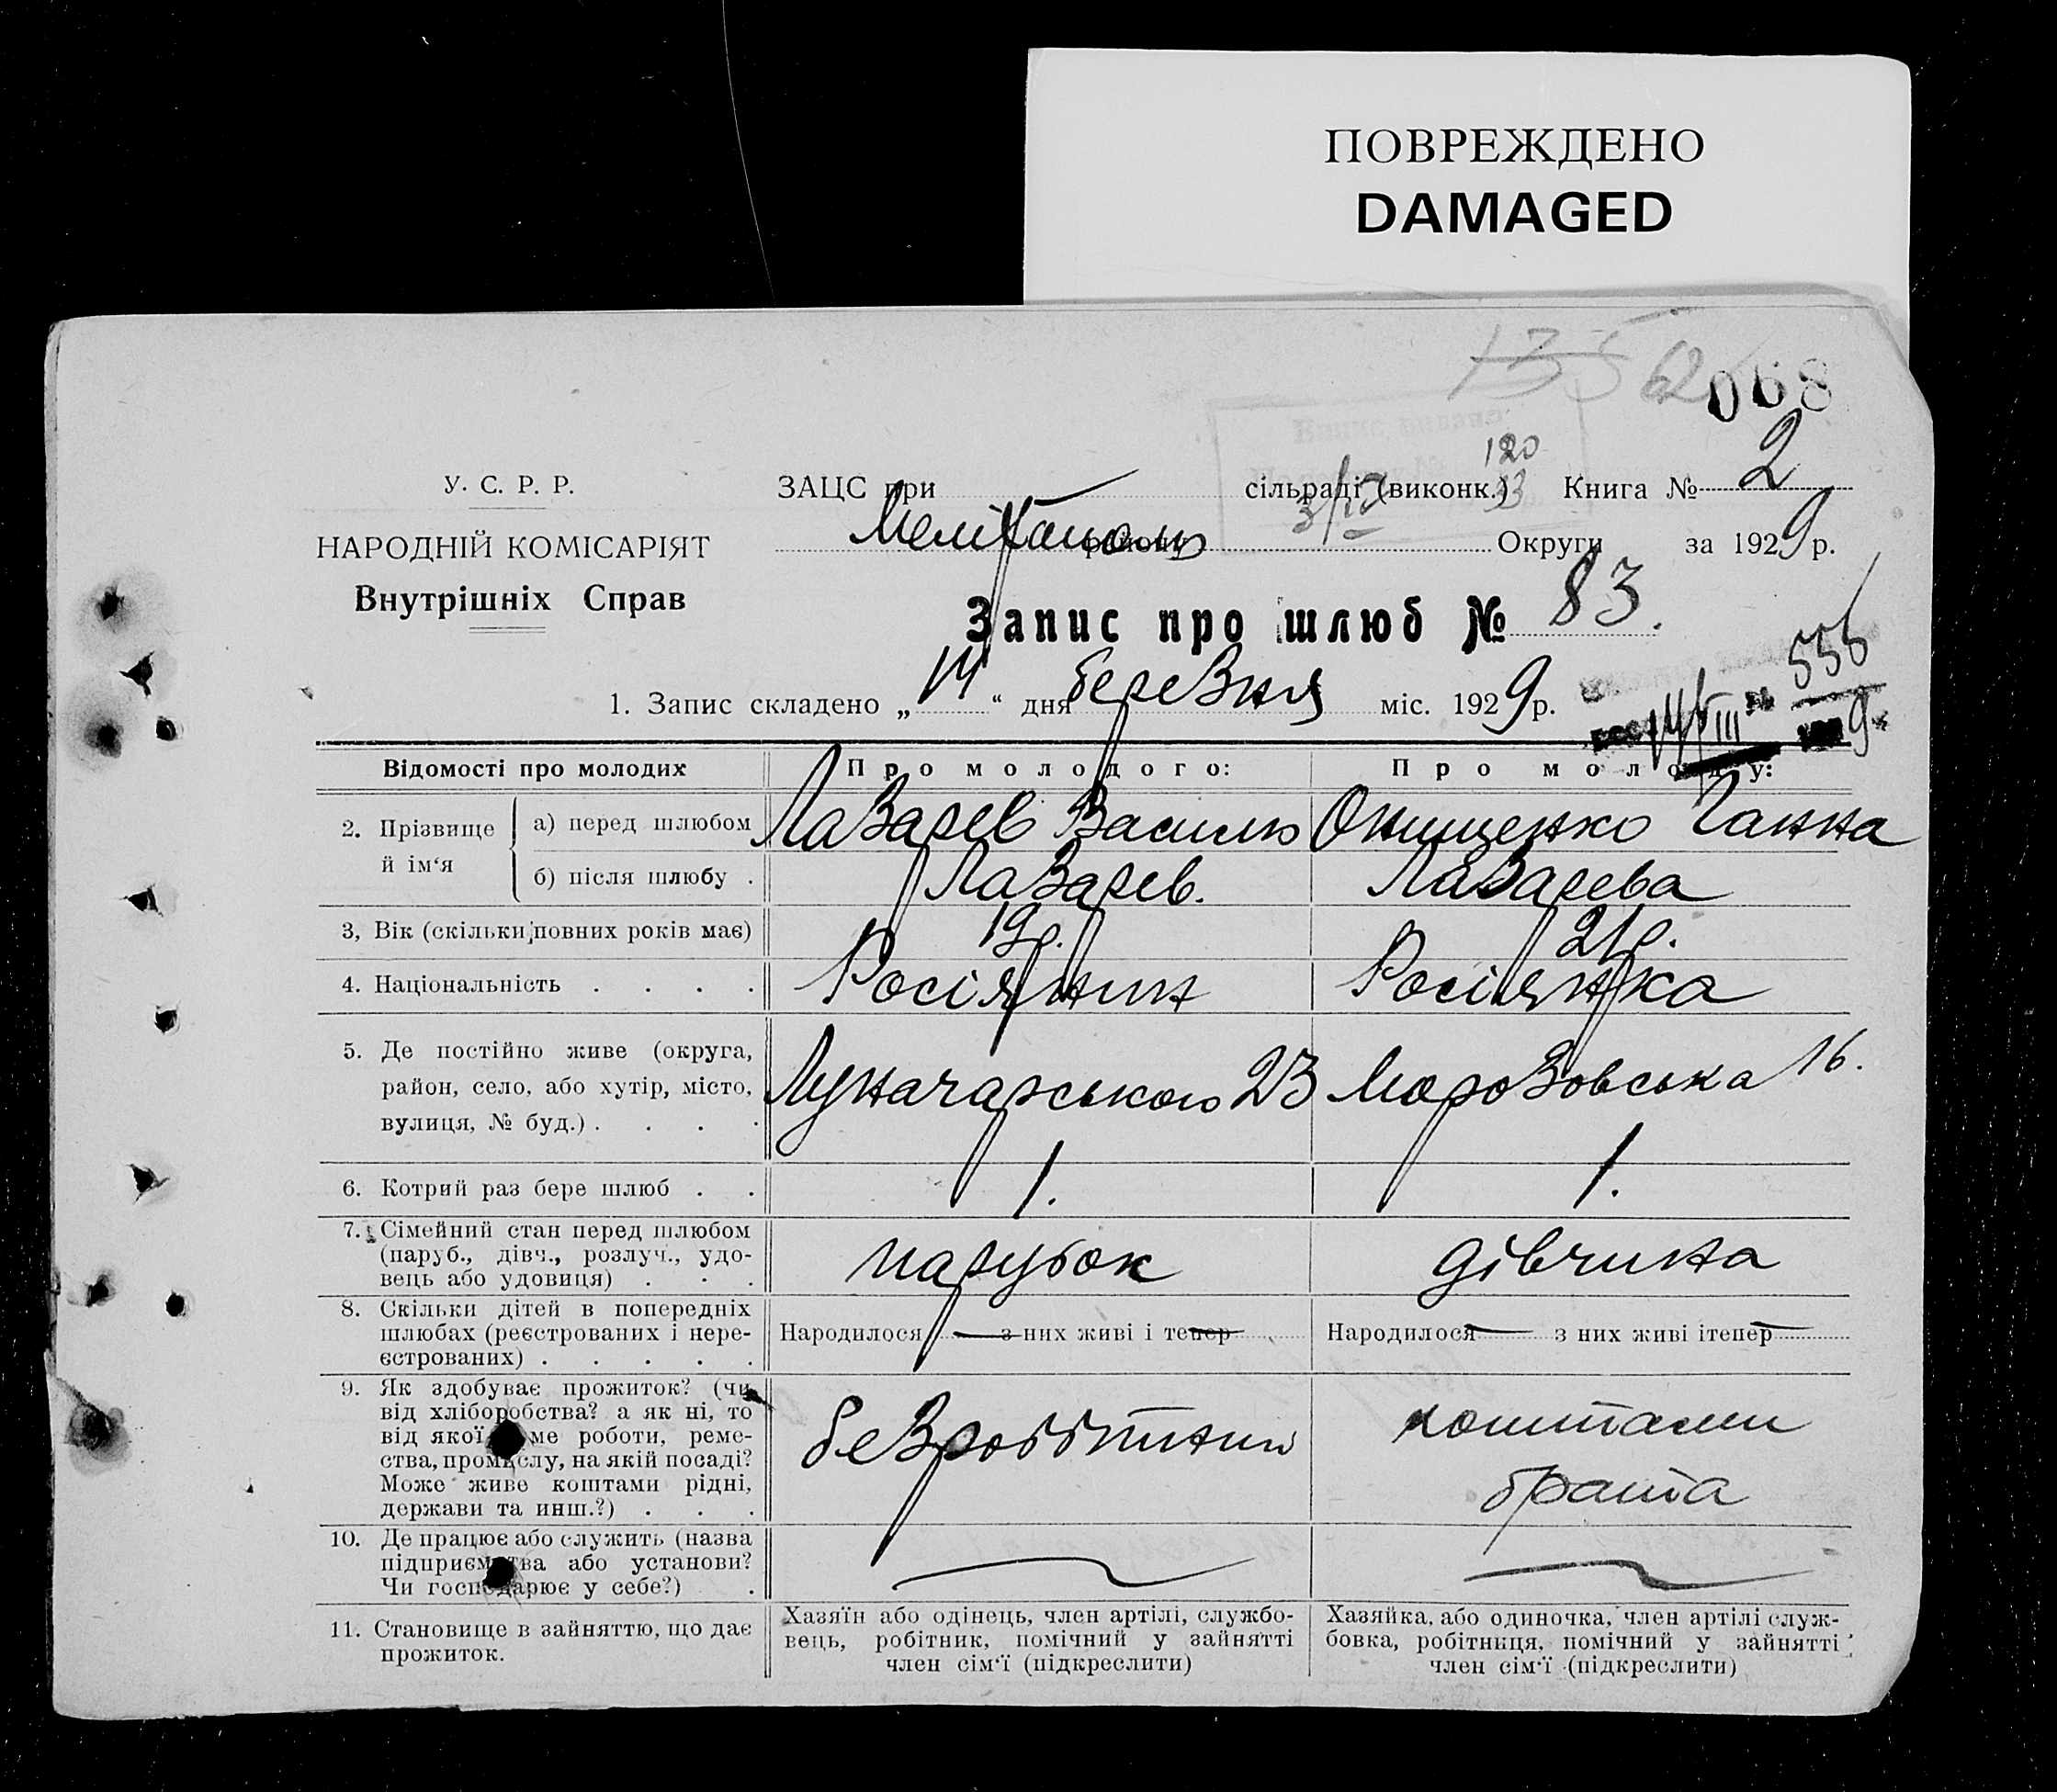 ПОВРЕЖДЕНО
DAMAGED
13562
068
У. С. Р. Р.
НАРОДНІЙ КОМІСАРІЯТ
Внутрішніх Справ
ЗАЦС при сільраді (виконк.) Книга № 2
120
3/12
Мелітополь району Округи за 1929 р.
Запис про шлюб № 83.
1. Запис складено „14“ дня березня міс. 1929 р.
556
14/III 9
Відомості про молодих
Про молодого:
Про молоду:
2. Прізвище й ім‘я
а) перед шлюбом Лазарев Василь Онищенко Ганна
б) після шлюбу . Лазарев. Лазарева
3, Вік (скільки повних років має) 19р. 21р.
4. Національність . . . . Росіянин Росіянка
5. Де постійно живе (округа,
район, село, або хутір, місто,
вулиця, № буд.) . . . .
Луначарського 23 Морозовська 16.
6. Котрий раз бере шлюб . . 1. 1.
7. Сімейний стан перед шлюбом
(паруб., дівч., розлуч., удо-
вець або удовиця) . . .
парубок дівчина
8. Скільки дітей в попередніх
шлюбах (реєстрованих і нере-
єстрованих) . . . . .
Народилося — з них живі і тепер —
Народилося — з них живі ітепер —
9. Як здобуває прожиток? (чи
від хліборобства? а як ні, то
від якої ме роботи, реме-
ства, промислу, на якій посаді?
Може живе коштами рідні,
держави та инш.?) . . .
безробітний
коштами
брата
10. Де працює або служить (назва
підприємства або установи?
Чи господарює у себе?) .
11. Становище в зайняттю, що дає
прожиток.
Хазяїн або одінець, член артілі, службо-
вець, робітник, помічний у зайнятті
член сім‘ї (підкреслити)
Хазяйка, або одиночка, член артілі служ-
бовка, робітниця, помічний у зайнятті
член сім‘ї (підкреслити)